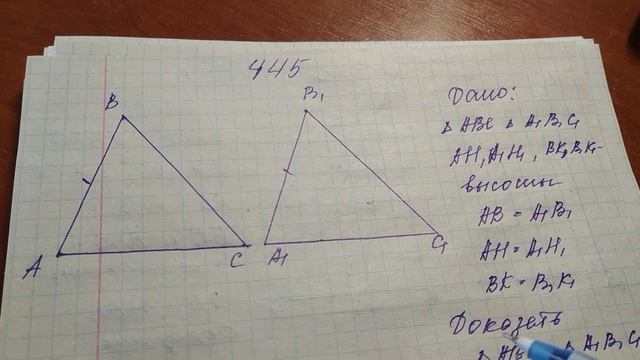 445
B
B₁
A
C
A₁
C₁
Дано:
△ ABC △ A₁B₁C₁
AH, A₁H₁, BK, B₁K₁ -
высоты
AB = A₁B₁
AH = A₁H₁
BK = B₁K₁
Доказать
△ A₁B₁C₁